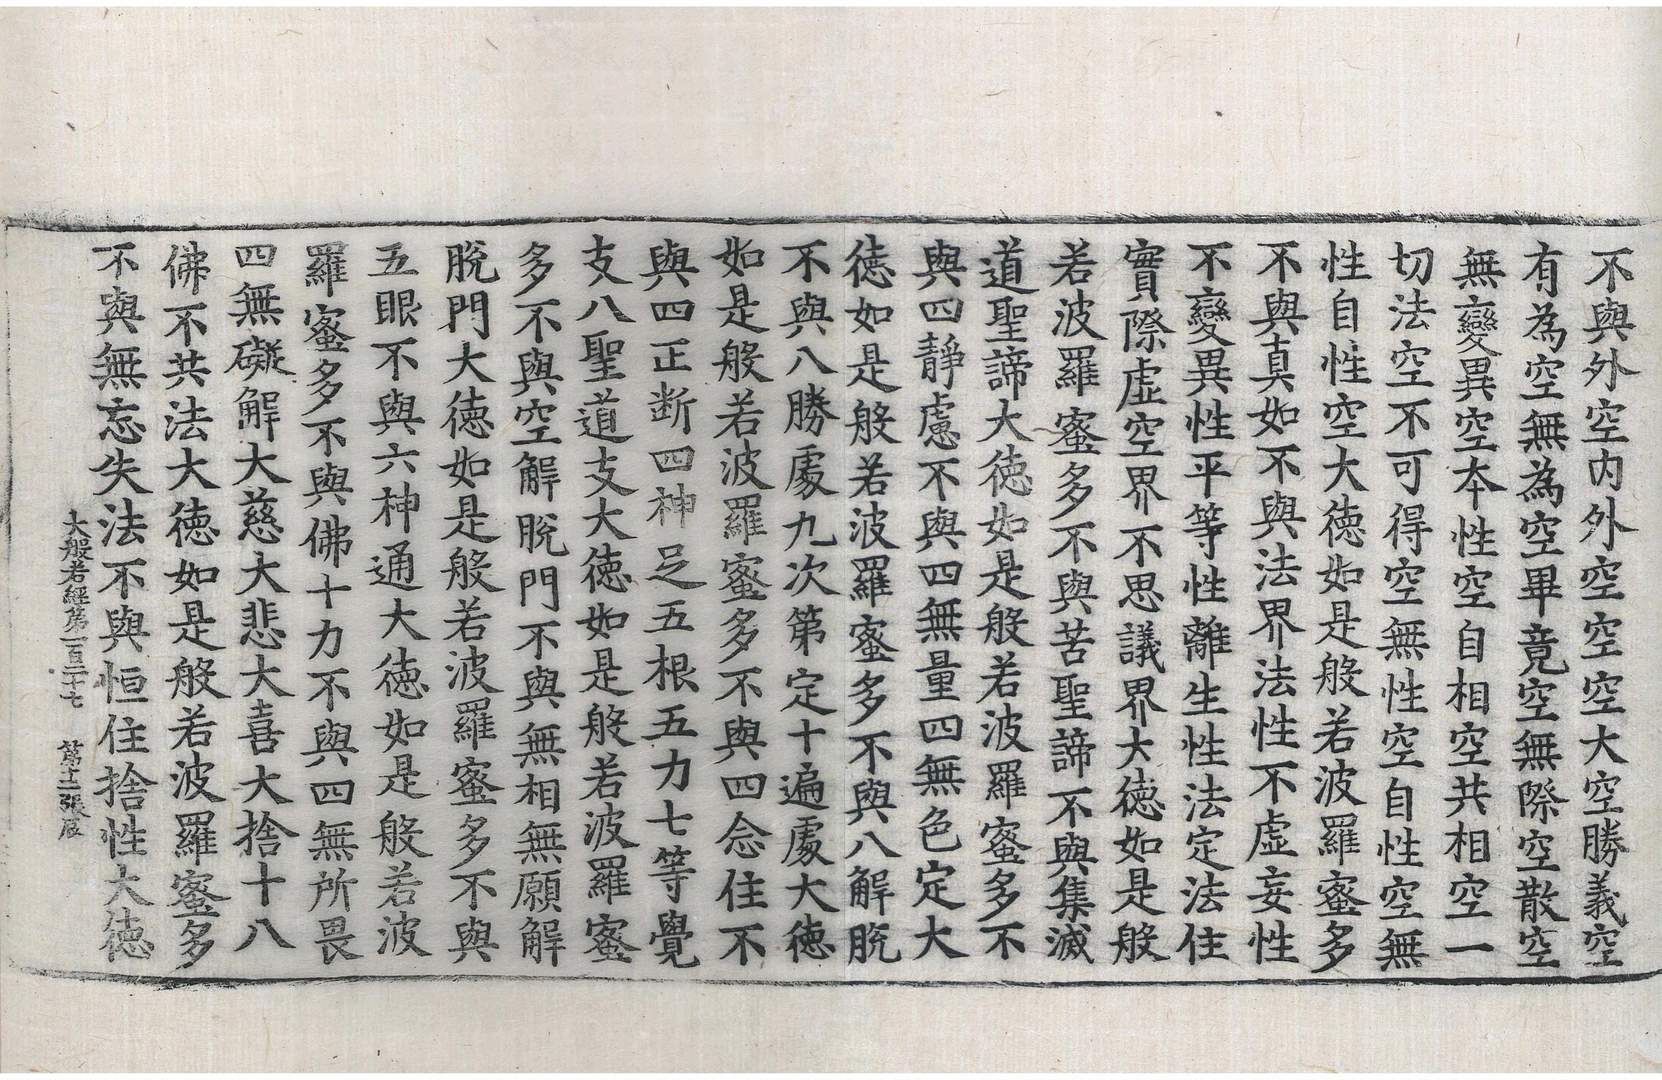 不與外空內外空空空大空勝義空
有為空無為空畢竟空無際空散空
無變異空本性空自相空共相空一
切法空不可得空無性空自性空無
性自性空大徳如是般若波羅蜜多
不與真如不與法界法性不虛妄性
不變異性平等性離生性法定法住
實際虛空界不思議界大徳如是般
若波羅蜜多不與苦聖諦不與集滅
道聖諦大徳如是般若波羅蜜多不
與四靜慮不與四無量四無色定大
徳如是般若波羅蜜多不與八解脫
不與八勝處九次第定十遍處大徳
如是般若波羅蜜多不與四念住不
與四正断四神足五根五力七等覺
支八聖道支大徳如是般若波羅蜜
多不與空解脫門不與無相無願解
脫門大徳如是般若波羅蜜多不與
五眼不與六神通大徳如是般若波
羅蜜多不與佛十力不與四無所畏
四無礙解大慈大悲大喜大捨十八
佛不共法大徳如是般若波羅蜜多
不與無忘失法不與恒住捨性大徳
大般若經第一百二十七 第十二張 辰